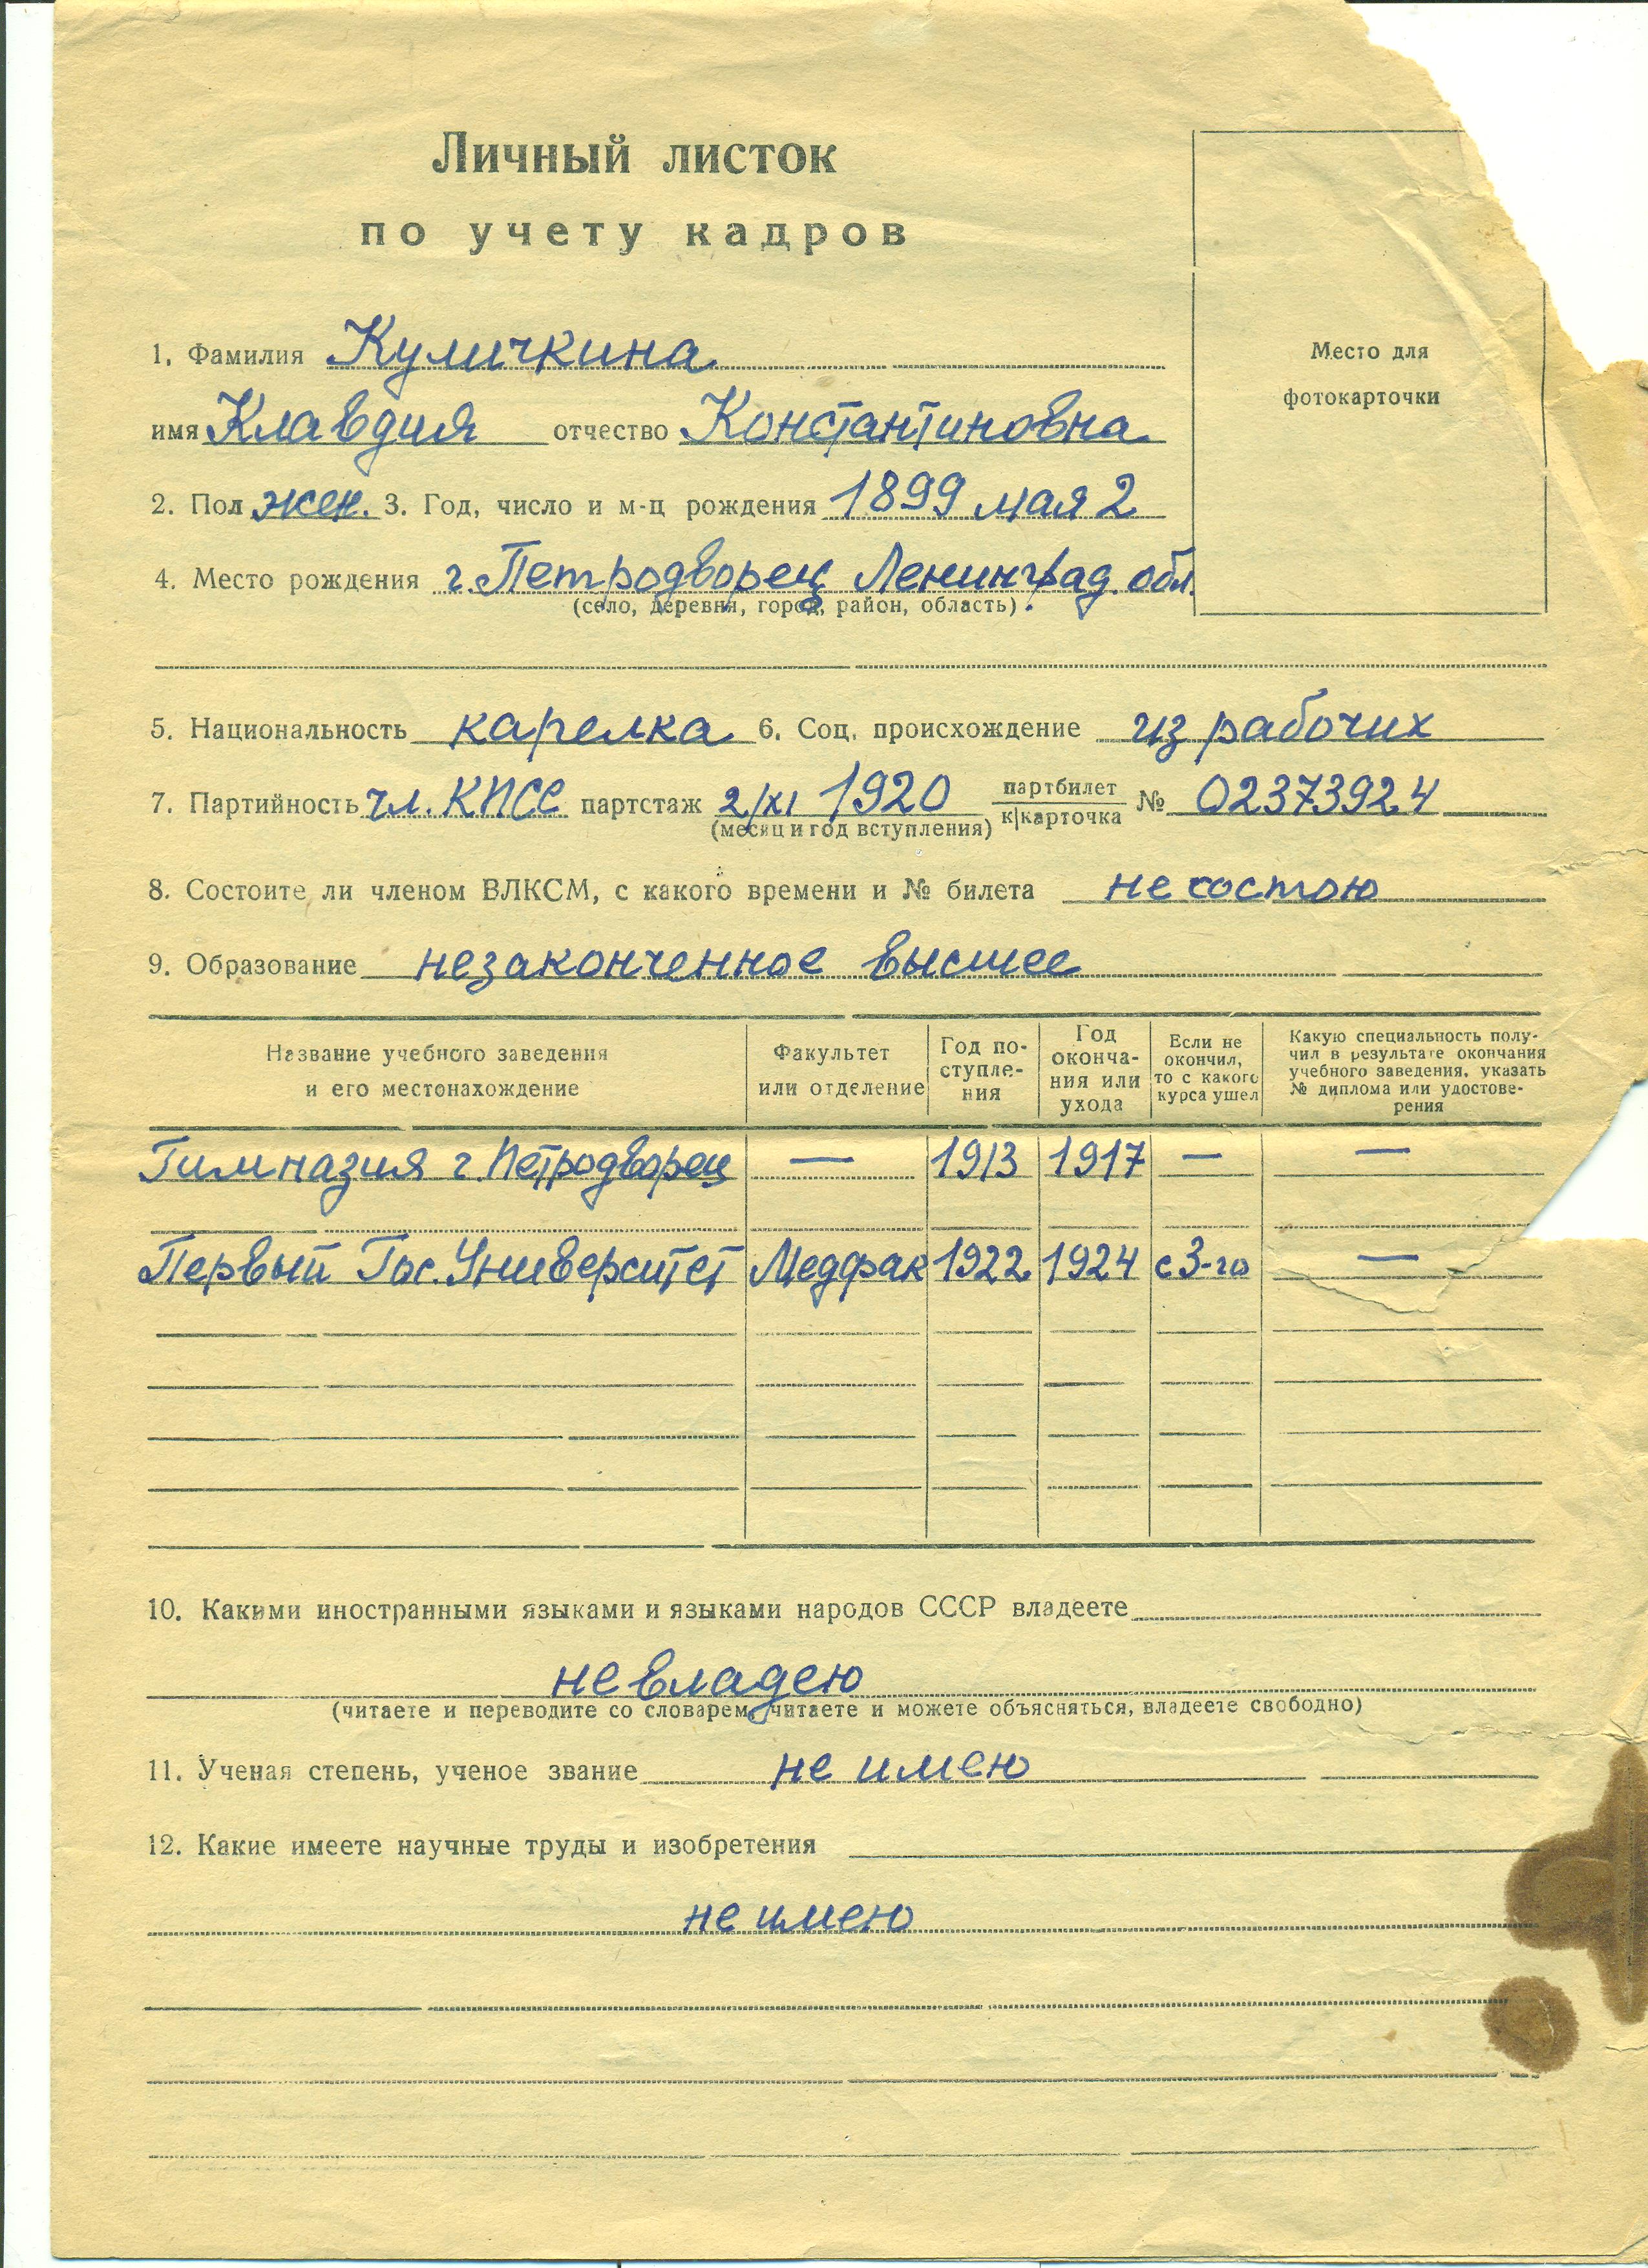 Личный листок
по учету кадров
Место для
фотокарточки
1. Фамилия Куличкина
имя Клавдия отчество Константиновна
2. Пол жен. 3. Год, число и м-ц рождения 1899 мая 2
4. Место рождения г. Петродворец Ленинград. обл.
(село, деревня, город, район, область)
5. Национальность карелка 6. Соц. происхождение из рабочих
7. Партийность чл. КПСС партстаж 2/XI 1920 партбилет к/карточка № 02373924
(месяц и год вступления)
8. Состоите ли членом ВЛКСМ, с какого времени и № билета не состою
9. Образование незаконченное высшее
Название учебного заведения и его местонахождение
Факультет или отделение
Год поступления
Год окончания или ухода
Если не окончил, то с какого курса ушел
Какую специальность получил в результате окончания учебного заведения, указать № диплома или удостоверения
Гимназия г. Петродворец — 1913 1917 — —
Первый Гос. Университет Медфак 1922 1924 с 3-го —
10. Какими иностранными языками и языками народов СССР владеете
не владею
(читаете и переводите со словарем, читаете и можете объясняться, владеете свободно)
11. Ученая степень, ученое звание не имею
12. Какие имеете научные труды и изобретения
не имею